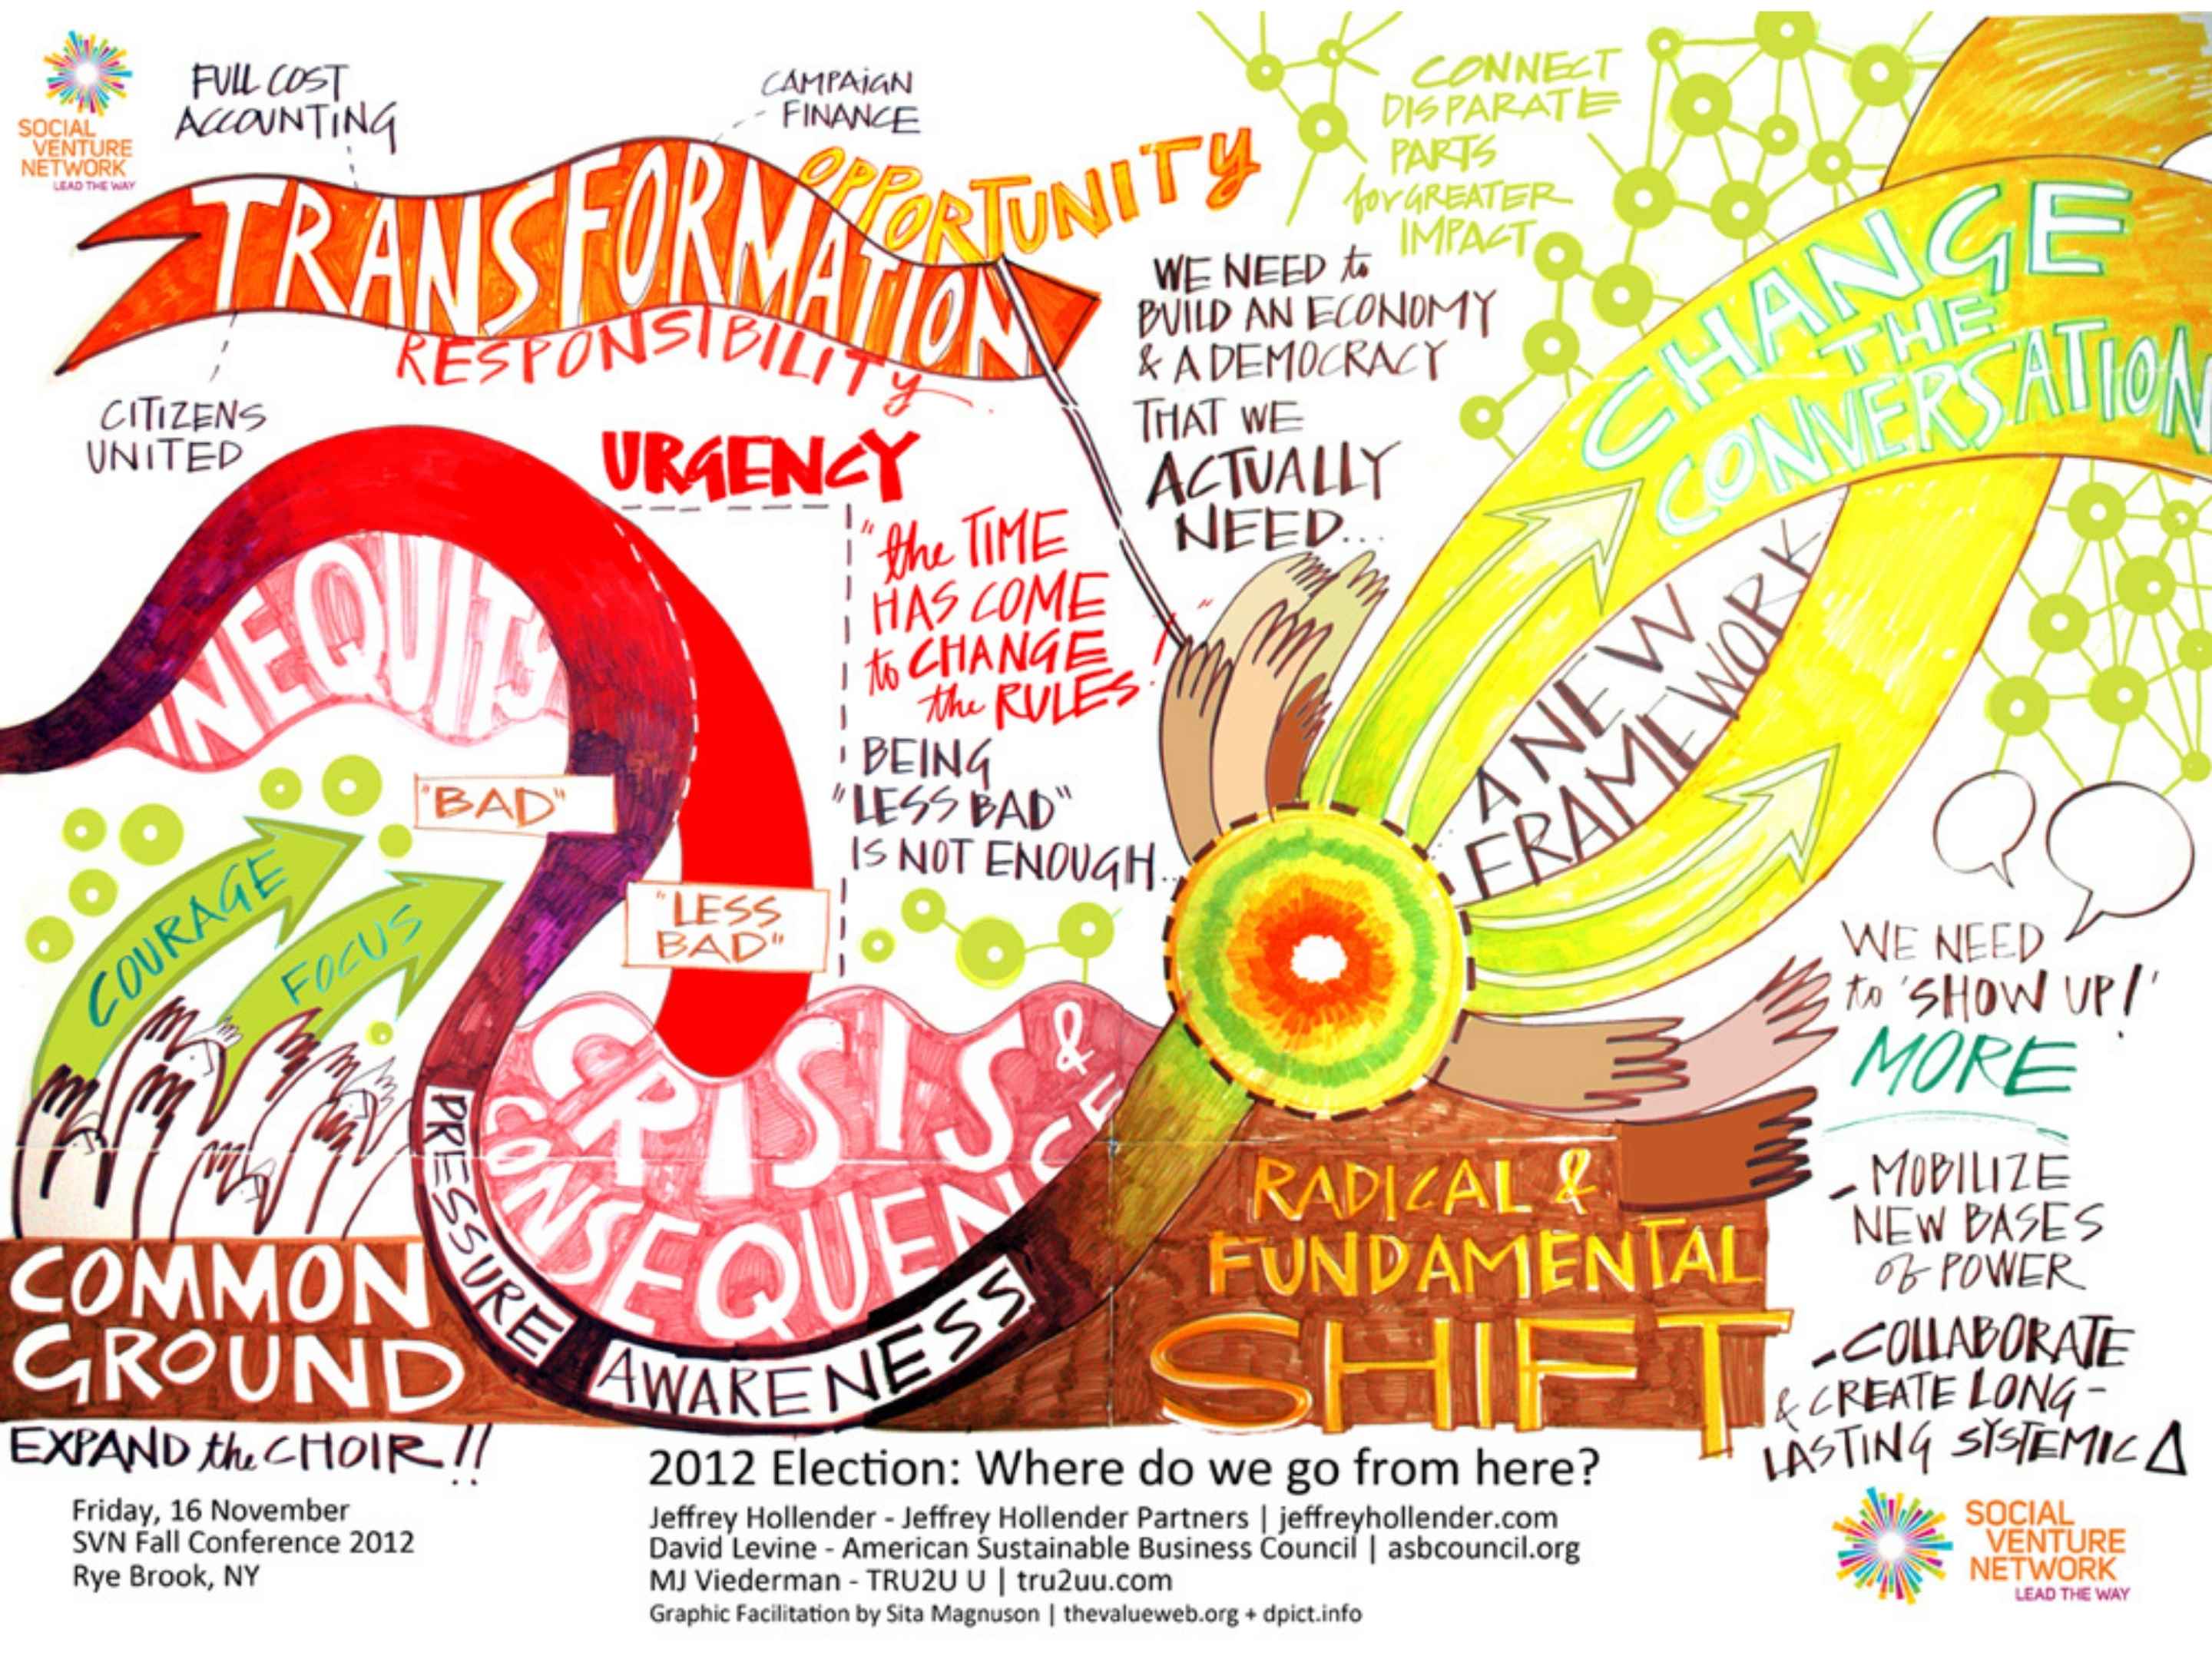 SOCIAL
VENTURE
NETWORK
LEAD THE WAY
FULL COST
ACCOUNTING
CAMPAIGN
FINANCE
TRANSFORMATION
OPPORTUNITY
RESPONSIBILITY
CITIZENS
UNITED
CONNECT
DISPARATE
PARTS
for GREATER
IMPACT
WE NEED to
BUILD AN ECONOMY
& A DEMOCRACY
THAT WE
ACTUALLY
NEED...
CHANGE
THE
CONVERSATION
URGENCY
"the TIME
HAS COME
to CHANGE
the RULES!"
INEQUITY
"BAD"
"LESS
BAD"
BEING
"LESS BAD"
IS NOT ENOUGH...
A NEW
FRAMEWORK
COURAGE
FOCUS
WE NEED
to 'SHOW UP!'
MORE
CRISIS &
CONSEQUENCE
PRESSURE
AWARENESS
COMMON
GROUND
EXPAND the CHOIR!!
RADICAL &
FUNDAMENTAL
SHIFT
- MOBILIZE
NEW BASES
of POWER
- COLLABORATE
& CREATE LONG-
LASTING SYSTEMIC Δ
Friday, 16 November
SVN Fall Conference 2012
Rye Brook, NY
2012 Election: Where do we go from here?
Jeffrey Hollender - Jeffrey Hollender Partners | jeffreyhollender.com
David Levine - American Sustainable Business Council | asbcouncil.org
MJ Viederman - TRU2U U | tru2uu.com
Graphic Facilitation by Sita Magnuson | thevalueweb.org + dpict.info
SOCIAL
VENTURE
NETWORK
LEAD THE WAY